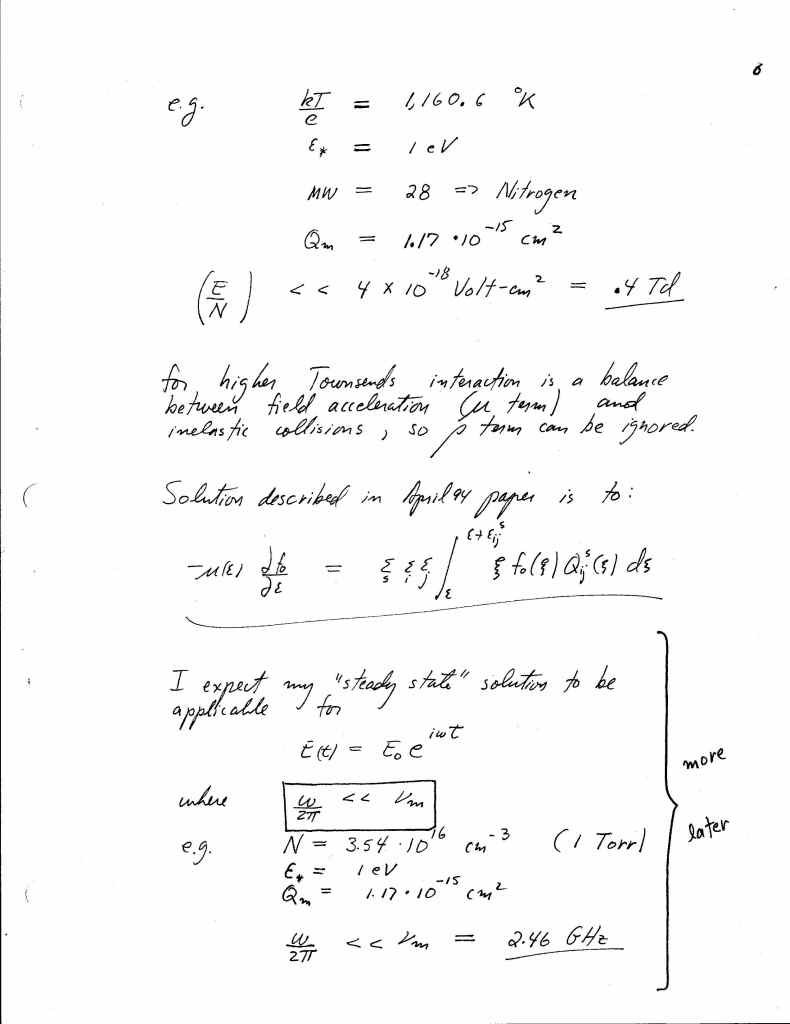 6
e.g. kT/e = 1,160.6 °K
ε* = 1 eV
MW = 28 => Nitrogen
Qm = 1.17 · 10^-15 cm^2
(E/N) << 4 × 10^-18 Volt-cm^2 = .4 Td
for higher Townsends interaction is a balance
between field acceleration (μ term) and
inelastic collisions, so ρ term can be ignored.
Solution described in April 94 paper is to:
-μ(ε) ∂f₀/∂ε = Σs Σi Σj ∫_ε^(ε+ε_ij^s) ξ f₀(ξ) Q_ij^s(ξ) dξ
I expect my "steady state" solution to be
applicable for
E(t) = E₀ e^iωt
where ω/2π << νm
e.g. N = 3.54 · 10^16 cm^-3 (1 Torr)
ε* = 1 eV
Qm = 1.17 · 10^-15 cm^2
ω/2π << νm = 2.46 GHz
more
later